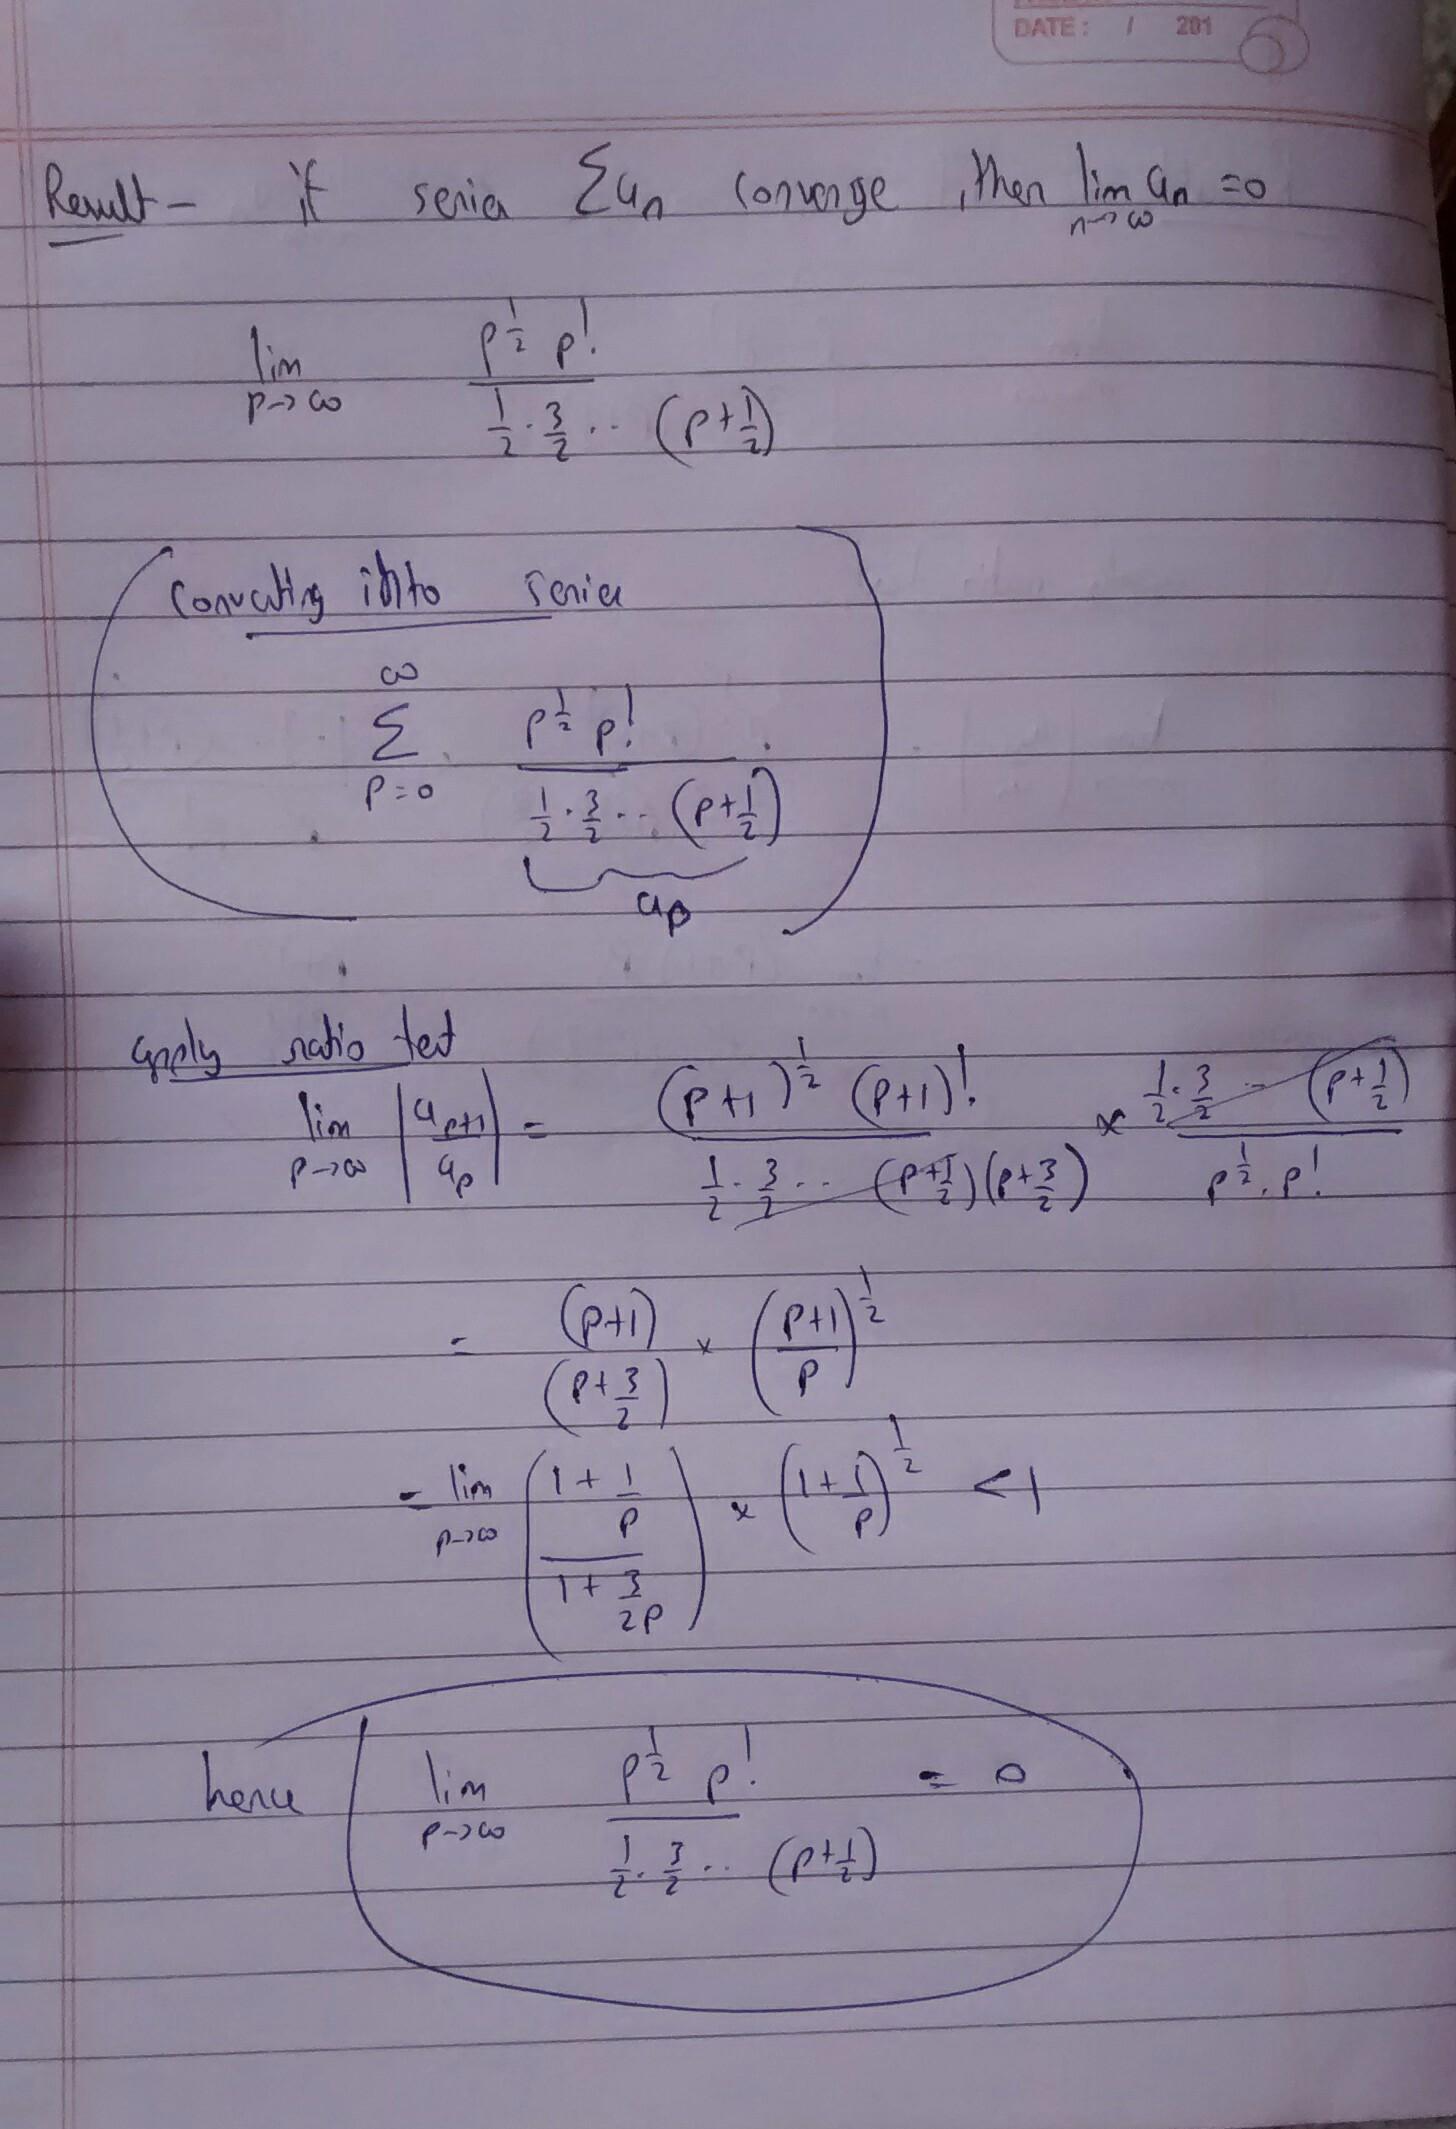 DATE: / 201
Result - if series Σ aₙ converge, then lim n→∞ aₙ = 0
lim p→∞ p^{1/2} p! / (1/2 · 3/2 ·· (p+1/2))
Converting into series
∞ Σ p=0 p^{1/2} p! / (1/2 · 3/2 ·· (p+1/2))
a_p
apply ratio test
lim p→∞ |a_{p+1} / a_p| = (p+1)^{1/2} (p+1)! / (1/2 · 3/2 ·· (p+1/2)(p+3/2)) × 1/2 · 3/2 -- (p+1/2) / (p^{1/2} · p!)
= (p+1) / (p+3/2) × ((p+1)/p)^{1/2}
= lim p→∞ ((1 + 1/p) / (1 + 3/2p)) × (1 + 1/p)^{1/2} < 1
hence lim p→∞ p^{1/2} p! / (1/2 · 3/2 ·· (p+1/2)) = 0